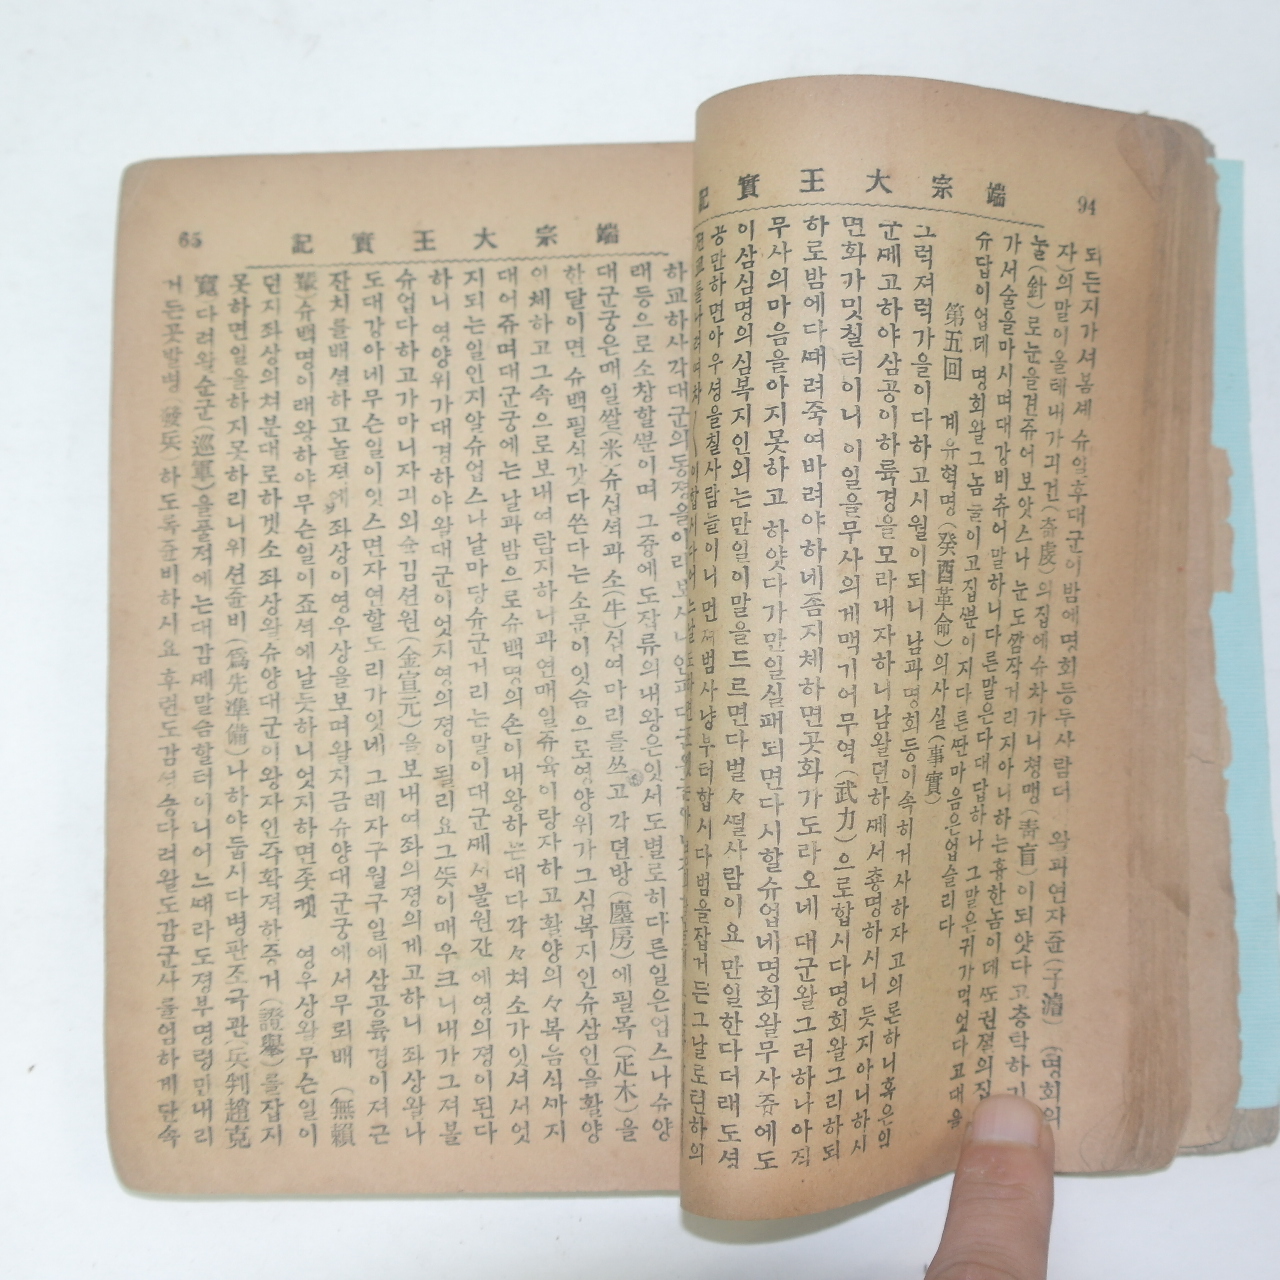 94
端宗大王實記
되든지가셔봄셰 슈일후대군이밤에명회등두사람더 왁과연자쥰(子濬) (명회의
자)의말이올테내가긔건(奇虔)의집에슈차가니쳥맹(靑盲)이되얏다고층탁하기
눌(針)로눈을견쥬어보앗스나 눈도깜작거리지아니하는흉한놈이데또권졀의집
가서술을마시며대강비츄어말하니다른말은다대답하나 그말은귀가먹엇다고대을
슈답이업데 명회왈그놈들이고집뿐이지다른딴마음은업슬리다
第五回 계유혁명(癸酉革命)의사실(事實)
그럭져럭가을이다하고시월이되니 남과명회등이속히거사하자고의론하니혹은의
군께고하야삼공이하륙경을모라내자하니남왈뎐하께서춍명하시니듯지아니하시
면화가밋칠터이니 이일을무사의게맥기어무역(武力)으로합시다명회왈그리하되
하로밤에다때려죽여바려야하네좀지체하면곳화가도라오네 대군왈그러하나아직
무사의마음을아지못하고 하얏다가만일실패되면다시할슈업네명회왈무사쥬에도
이삼심명의심복지인외는만일이말을드르면다벌々떨사람이요 만일한다더래도셧
공만하면아우셩을칠사람들이니 먼져범사냥부터합시다범을잡거든그날로뎐하의
65
端宗大王實記
하교하사각대군의동졍을이라보시나
래등으로소창할뿐이며 그중에도잡류의내왕은잇서도별로히다른일은업스나슈양
대군궁은매일쌀(米)슈십셕과소(牛)십여마리를쓰고각뎐방(廛房)에필목(疋木)을
한달이면슈백필식갓다쓴다는소문이잇슴으로영양위가그심복지인슈삼인을활양
의체하고그속으로보내여탐지하니과연매일쥬육이랑자하고활양의々복음식까지
대어쥬며대군궁에는날과밤으로슈백명의손이내왕하는대다각々쳐소가잇셔서엇
지되는일인지알슈업스나날마당슈군거리는말이대군께서불원잔에영의졍이된다
하니 영양위가대경하야왈대군이엇지영의졍이될리요그뜻이매우크니내가그져볼
슈업다하고가마니자긔외숙김션원(金宣元)을보내여좌의졍의게고하니 좌상왈나
도대강아네무슨일이잇스면자연할도리가잇네 그레자구월구일에삼공륙경이져근
잔치를배셜하고놀졔에좌상이영우상을보며왈지금슈양대군궁에서무뢰배 (無賴
輩)슈백명이래왕하야무슨일이죠셕에날듯하니엇지하면죳켓 영우상왈무슨일이
던지좌상의쳐분대로하겟소좌상왈슈양대군이왕자인즉확젹하증거(證擧)를잡지
못하면일을하지못하리니위션쥰비(爲先準備)나하야둡시다병판조극관(兵判趙克
寬)다려왈순군(巡軍)을풀적에는대감께말슴할터이니어느때라도졍부명령만내리
거든곳발병(發兵)하도록쥰비하시요 후련도감 다려왈도감군사를엄하게단속